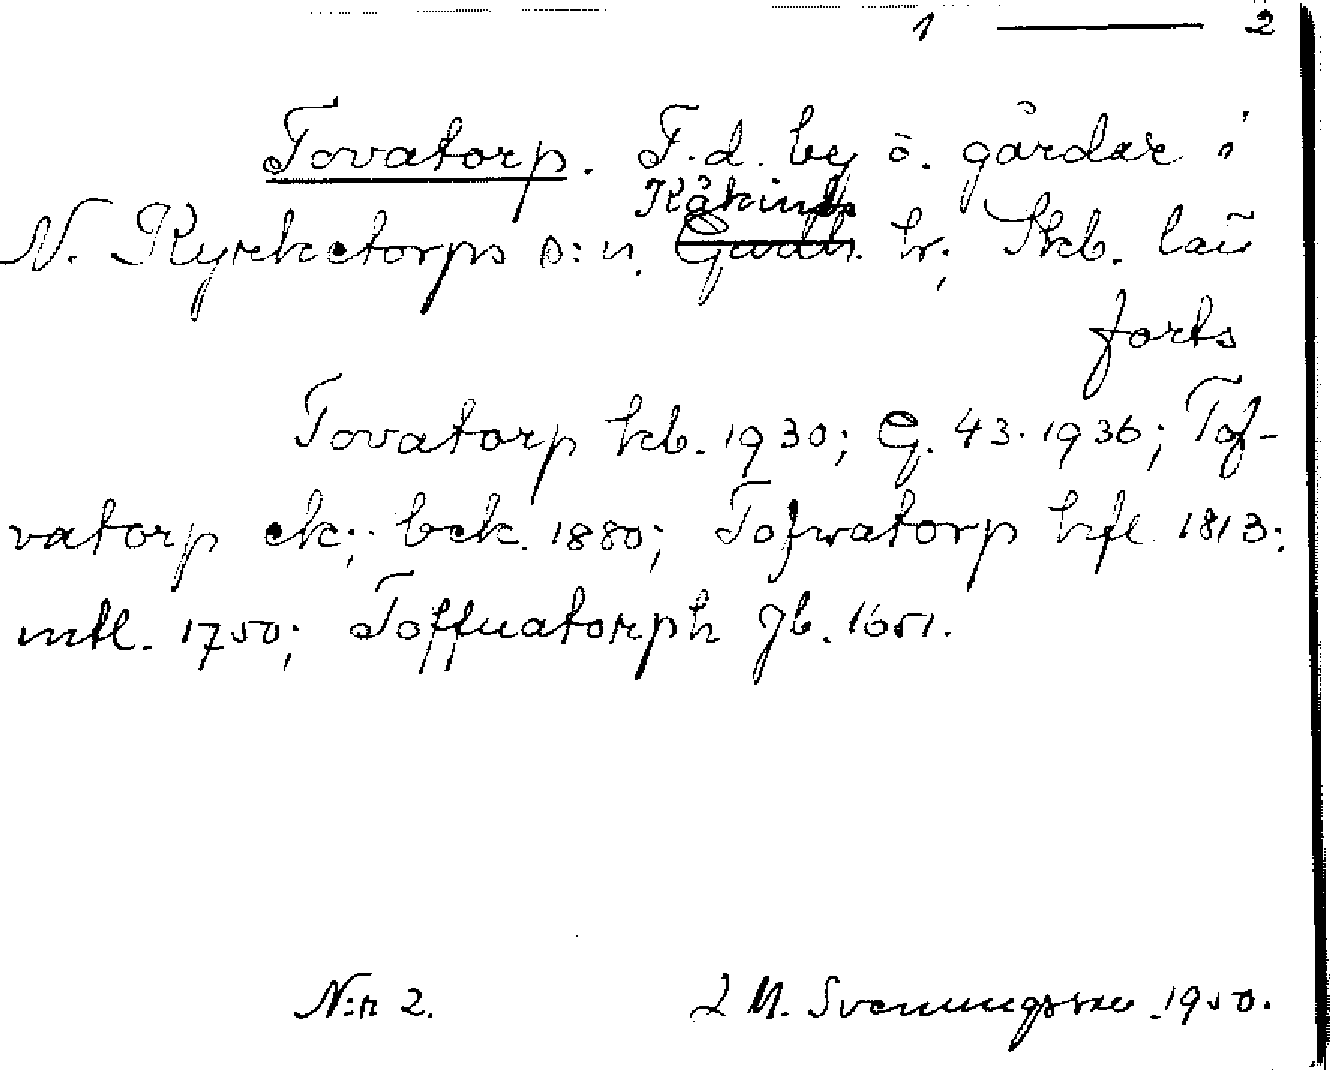 1 — 2
Tovatorp. F.d. by o. gårdar i
Kåkinds
N. Kyrketorps s:n. Gudh. hr; Skb. län
forts
Tovatorp kb. 1930; G. 43. 1936; Tof-
vatorp ek; bek. 1880; Tofwatorp hfl 1813;
mtl. 1750; Toffuatorph jb. 1651.
N:r 2. L M. Svenungsson 1950.